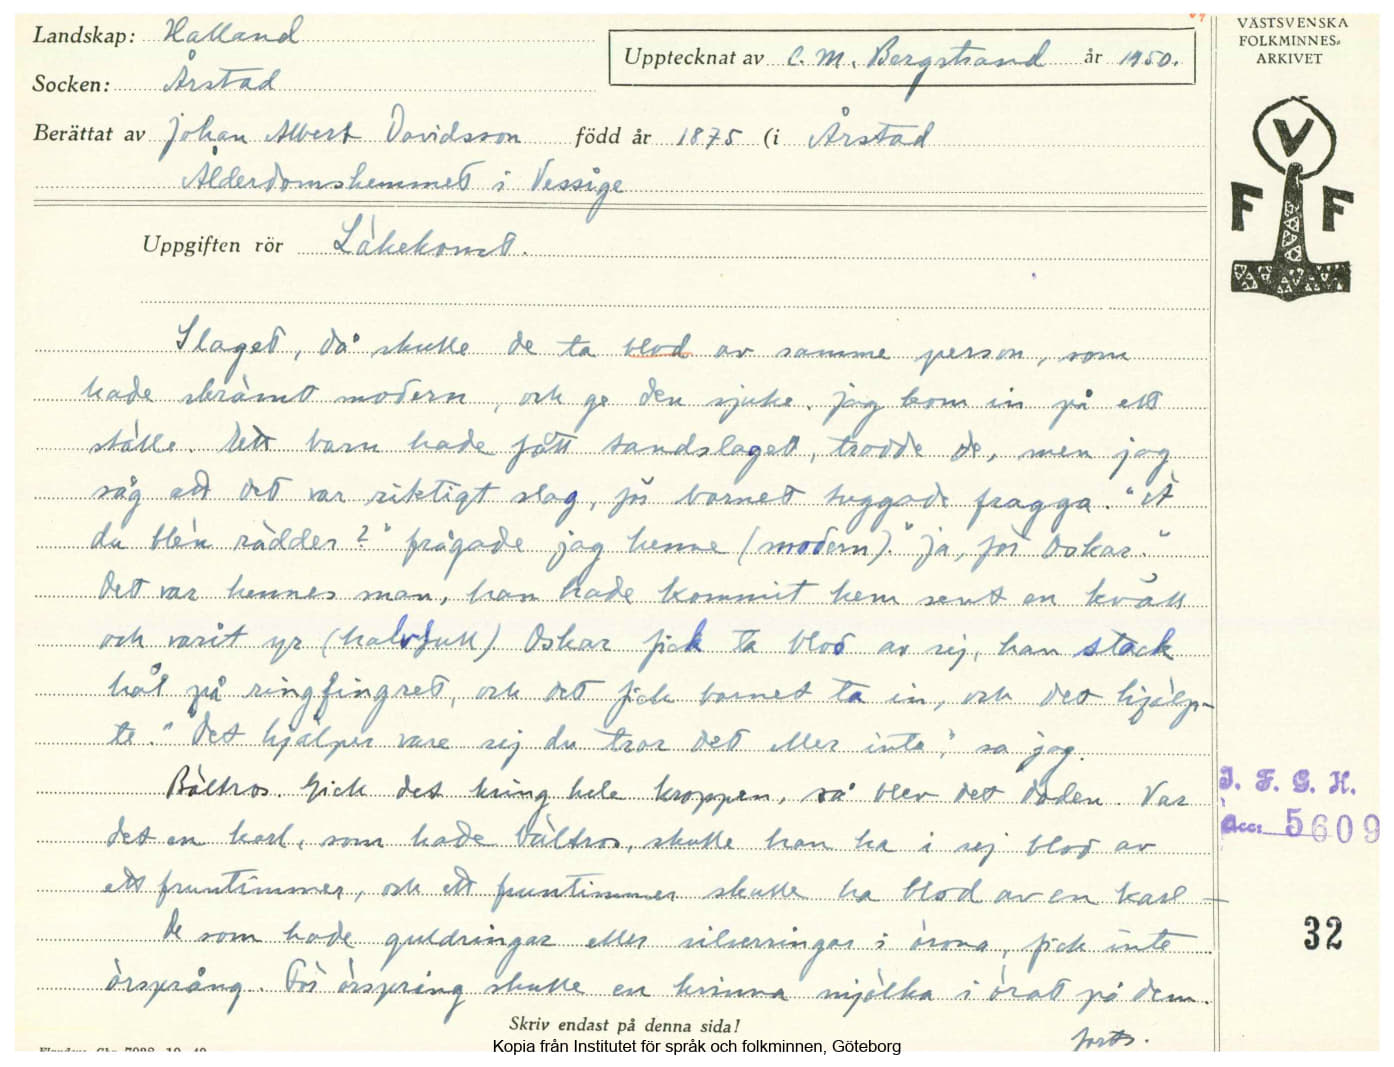 Landskap: Halland
Socken: Årstad
Upptecknat av C. M. Bergstrand år 1950.
Berättat av Johan Albert Davidsson född år 1875 (i Årstad
Ålderdomshemmet i Vessige
Uppgiften rör Läkekonst.
Slaget, då skulle de ta blod av samme person, som
hade skrämt modern, och ge den sjuke. Jag kom in på ett
ställe. Ett barn hade fått tandslaget, trodde de, men jag
såg att det var riktigt slag, för barnet tuggade fragga. "Ä
du blén rädder?" frågade jag henne (modern). "Ja, för Oskar."
Det var hennes man, han hade kommit hem sent en kväll
och varit yr (halvfull). Oskar fick ta blod av sej, han stack
hål på ringfingret, och det fick barnet ta in, och det hjälp-
te. "Det hjälper vare sej du tror det eller inte," sa jag.
Bältros. Gick det kring hele kroppen, så blev det döden. Var
det en karl, som hade bältros, skulle han ha i sej blod av
ett fruntimmer, och ett fruntimmer skulle ha blod av en karl –
De som hade guldringar eller silverringar i örona, fick inte
örsprång. För örspring skulle en kvinna mjölka i örat på dem.
forts.
Skriv endast på denna sida!
Kopia från Institutet för språk och folkminnen, Göteborg
VÄSTSVENSKA
FOLKMINNES-
ARKIVET
V
F F
I. F. G. H.
Acc: 5609
32